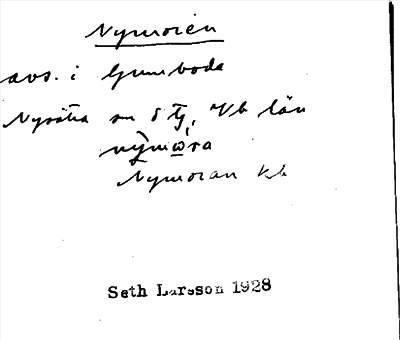 Nymorén
avs. i Gumboda
Nysätra sn Vb län
nymωra
Nymoran kb
Seth Larsson 1928